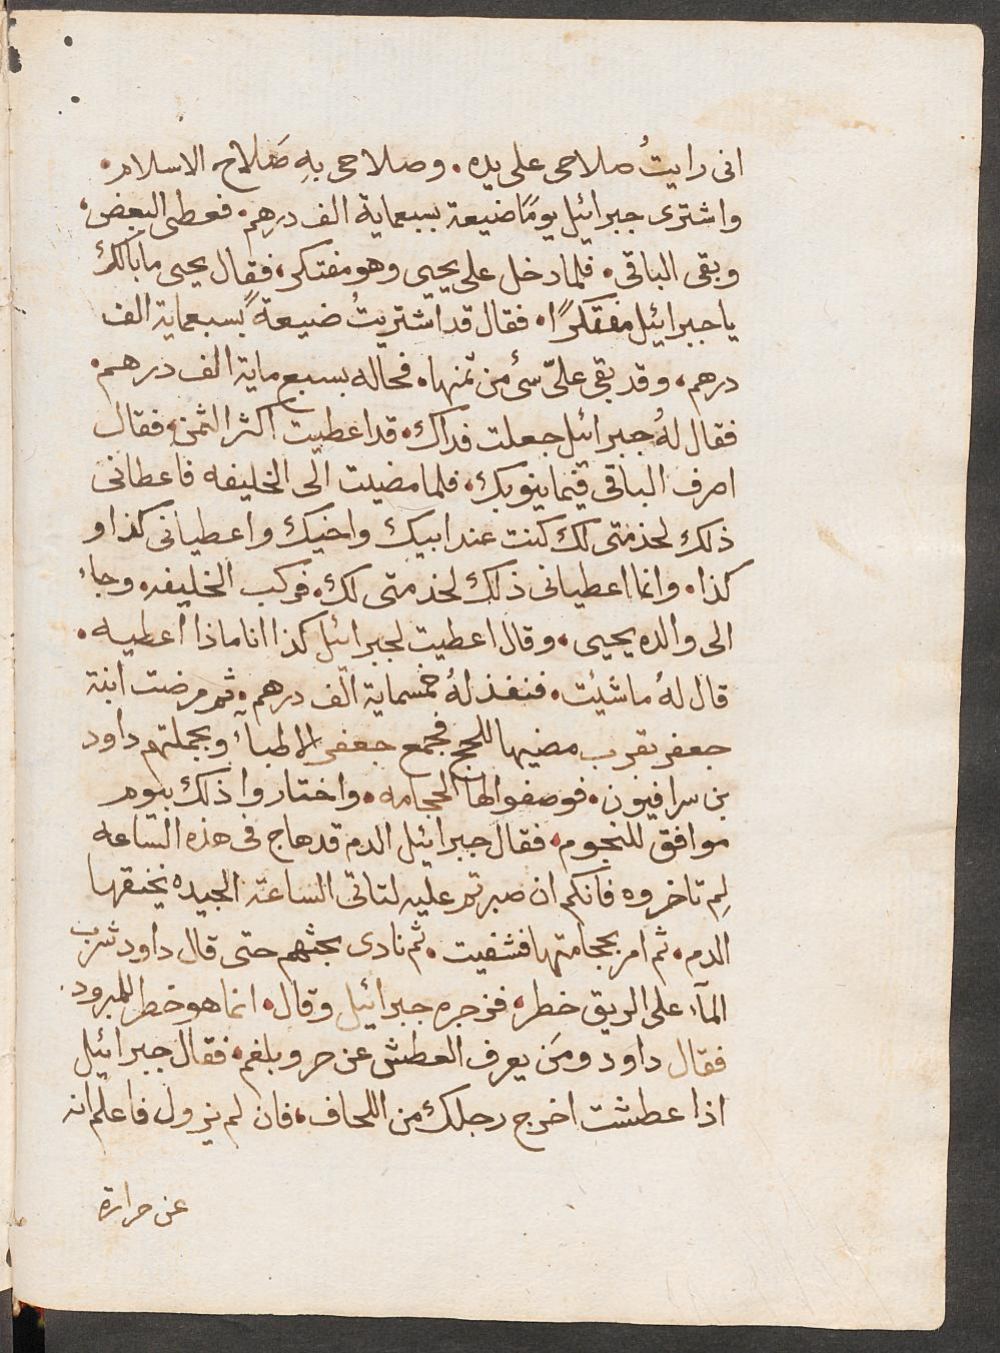 انى رايتُ صلاحى على يده. وصلاحى بهِ صَلاح الاسلام.
واشترى جبرائيل يومًا ضيعة بسبعماية الف درهم. فعطى البعض،
وبقى الباقى. فلما دخل على يحيى وهو مفتكر، فقال يحيى ما بالك
يا جبرائيل مفتكرًا. فقال قد اشتريتُ ضيعةً بسبعماية الف
درهم، وقد بقى علىّ سئ من ثمنها. فحاله بسبع ماية الف درهم.
فقال لهُ جبرائيل جعلت فداك. قد اعطيت اكثر الثمن، فقال
اصرف الباقى فيما ينوبك. فلما مضيت الى الخليفه فاعطانى
ذلك لخدمتى لك كنت عند ابيك واخيك واعطيانى كذا و
كذا. وانما اعطيانى ذلك لخدمتى لك. فركب الخليفه. وجاء
الى والده يحيى. وقال اعطيت لجبرائيل كذا انا ماذا اعطيه.
قال لهُ ما شيئت. فنفذ لهُ خمسماية الف درهم. ثم مرضت ابنة
جعفر بقرب مضيها للحج فجمع جعفر الاطباء وبجملتهم داود
بن سرافيون. فوصفوا لها الحجامه. واختاروا ذلك بيوم
موافق للنجوم. فقال جبرائيل الدم قد هاج فى هذه الساعه
لِم تاخروه فانكم ان صبرتم عليه لتاتى الساعة الجيده يخنقها
الدم. ثم امر بحجامتها فشفيت. ثم نادى بحثهم حتى قال داود شرب
المآء على الريق خطر. فزجره جبرائيل وقال. انما هو خطر للمبرود.
فقال داود ومَن يعرف العطش عن حر وبلغم. فقال جبرائيل
اذا عطشت اخرج رجلك من اللحاف، فان لم يزول فاعلم انه
عن حرارة